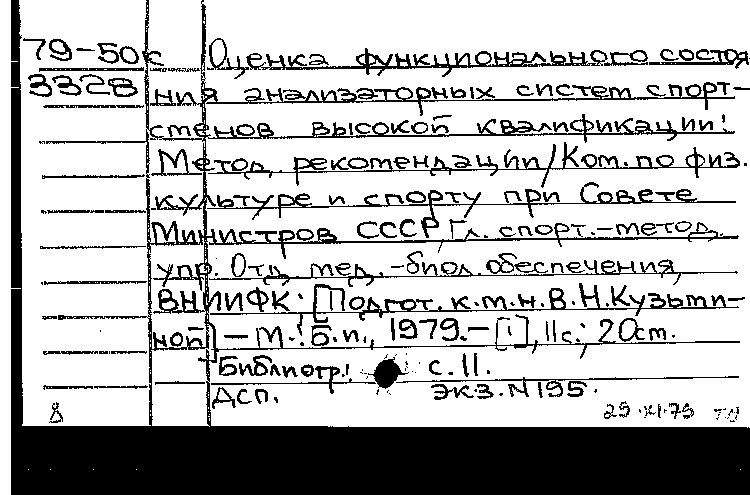 79-50к Оценка функционального состоя
3328 ния анализаторных систем спорт-
сменов высокой квалификации:
Метод. рекомендации/Ком. по физ.
культуре и спорту при Совете
Министров СССР, Гл. спорт.-метод.
упр. Отд. мед.-биол. обеспечения,
ВНИИФК; [Подгот. к.м.н. В.Н. Кузьми-
ной] – М.: Б.и., 1979. – [1], 11с.; 20см.
Библиогр.: с. 11.
ДСП. экз. N 195.
8 29.XI.79